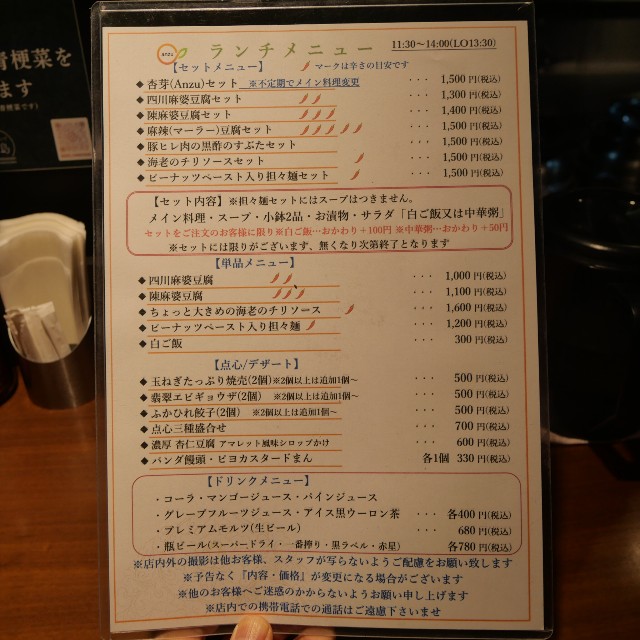 青梗菜を
ます
です)
anzu
ランチメニュー
11:30〜14:00(LO13:30)
【セットメニュー】 マークは辛さの目安です
◆杏芽(Anzu)セット ※不定期でメイン料理変更 ・・・ 1,500円(税込)
◆四川麻婆豆腐セット ・・・ 1,300円(税込)
◆陳麻婆豆腐セット ・・・ 1,400円(税込)
◆麻辣(マーラー)豆腐セット ・・・ 1,500円(税込)
◆豚ヒレ肉の黒酢のすぶたセット ・・・ 1,500円(税込)
◆海老のチリソースセット ・・・ 1,500円(税込)
◆ピーナッツペースト入り担々麺セット ・・・ 1,500円(税込)
【セット内容】※担々麺セットにはスープはつきません。
メイン料理・スープ・小鉢2品・お漬物・サラダ「白ご飯又は中華粥」
セットをご注文のお客様に限り※白ご飯…おかわり+100円 ※中華粥…おかわり+50円
※セットには限りがございます、無くなり次第終了となります
【単品メニュー】
◆四川麻婆豆腐 ・・・ 1,000円(税込)
◆陳麻婆豆腐 ・・・ 1,100円(税込)
◆ちょっと大きめの海老のチリソース ・・・ 1,600円(税込)
◆ピーナッツペースト入り担々麺 ・・・ 1,200円(税込)
◆白ご飯 ・・・ 300円(税込)
【点心/デザート】
◆玉ねぎたっぷり焼売(2個)※2個以上は追加1個〜 ・・・ 500円(税込)
◆翡翠エビギョウザ(2個) ※2個以上は追加1個〜 ・・・ 500円(税込)
◆ふかひれ餃子(2個) ※2個以上は追加1個〜 ・・・ 500円(税込)
◆点心三種盛合せ ・・・ 700円(税込)
◆濃厚 杏仁豆腐 アマレット風味シロップかけ ・・・ 600円(税込)
◆パンダ饅頭・ピヨカスタードまん 各1個 330円(税込)
【ドリンクメニュー】
・コーラ・マンゴージュース・パインジュース
・グレープフルーツジュース・アイス黒ウーロン茶 ・・・ 各400円(税込)
・プレミアムモルツ(生ビール) ・・・ 680円(税込)
・瓶ビール(スーパードライ・一番搾り・黒ラベル・赤星) 各780円(税込)
※店内外の撮影は他お客様、スタッフが写らないようご配慮をお願い致します
※予告なく『内容・価格』が変更になる場合がございます
※他のお客様へご迷惑のかからないようお願い申し上げます
※店内での携帯電話での通話はご遠慮下さいませ